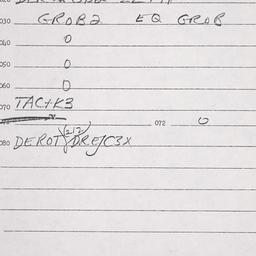 030 GROB2 EQ GROB
040 0
050 0
060 0
070 TACK3
072 0
080 DEROT (212) DREJC3X